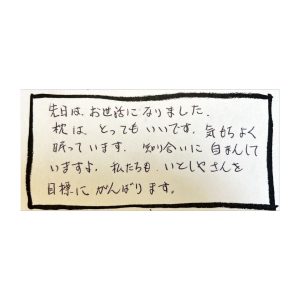 先日は、お世話になりました。
枕は とってもいいです。気もちよく
眠っています。知り合いに自まんして
いますよ。私たちも、いとしやさんを
目標にがんばります。